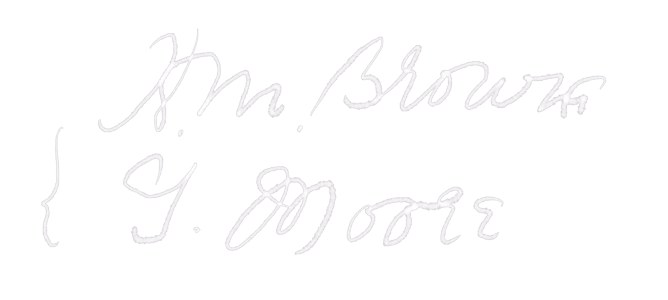 H.M. Brown
G. Moore